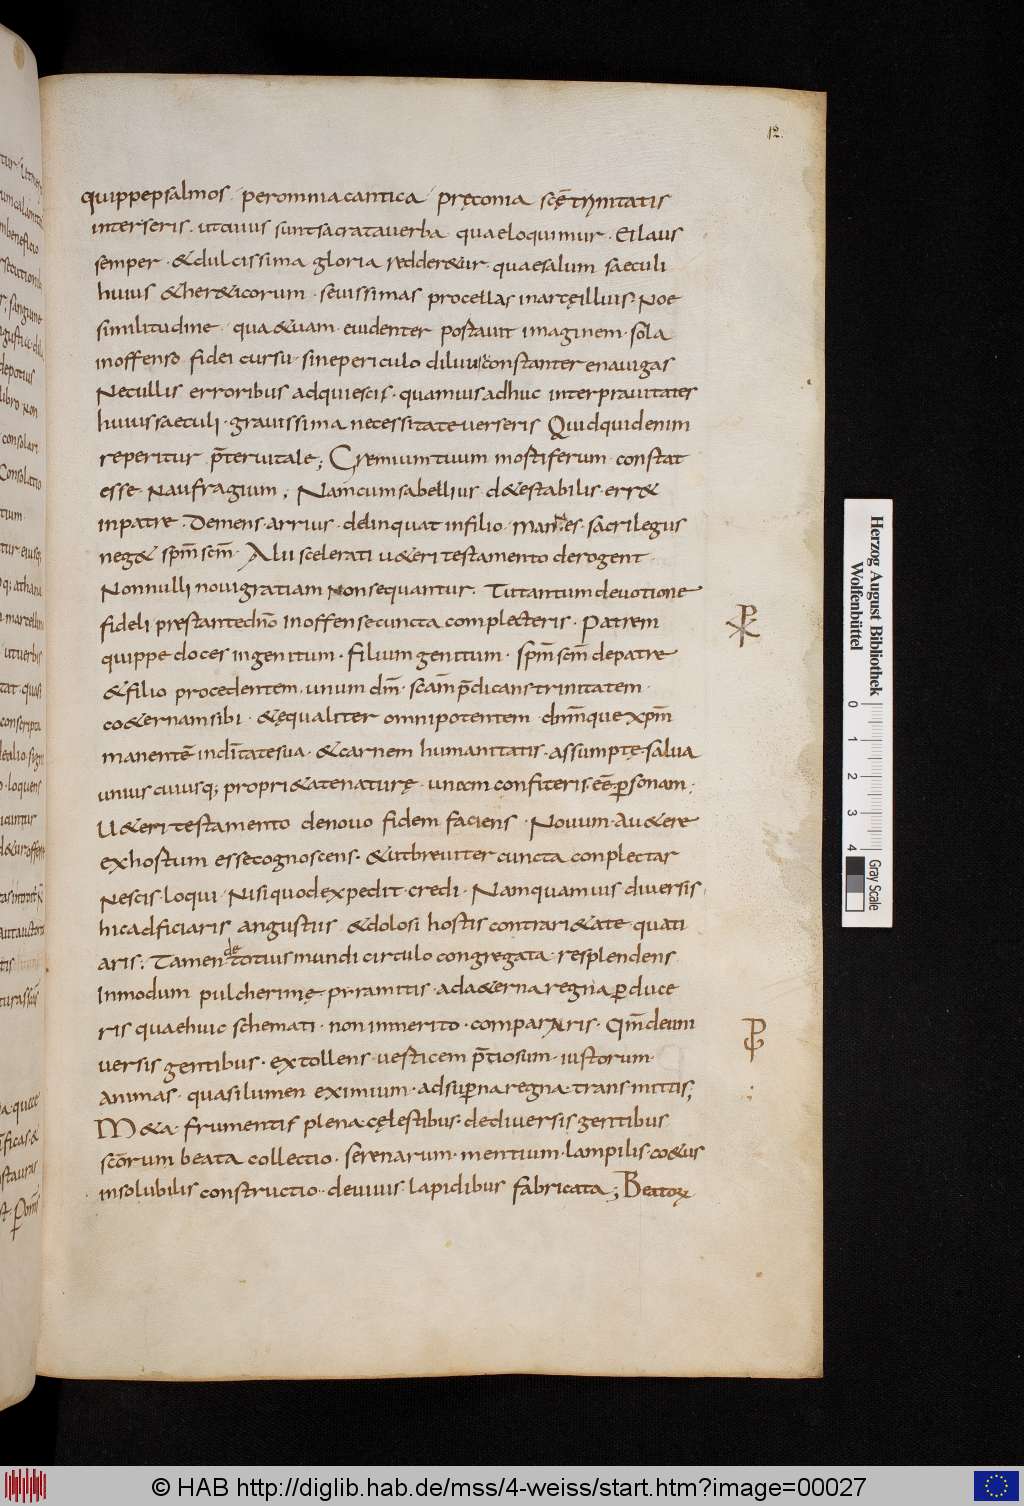 12.
quippe psalmos · per omnia cantica pręconia scę̄ trinitatis
inter seris · ut cuius sunt sacrata uerba quae loquimur · Et laus
semper · & dulcissima gloria redder&ur · quae salum saeculi
huius & her&icorum · seuissimas procellas in arcę illius · Noe
similitudine · qua & uam euidenter postauit imaginem · sola
inoffenso fidei cursu · sine periculo diluuii constanter enauigas
Nec ullis erroribus adquiescis · quamuis adhuc inter prauitates
huius saeculi · grauissima necessitate uerseris Quidquid enim
reperitur p̄ter uitale; Gremium tuum mostiferum · constat
esse · Naufragium; Nam cum sabellius · d&estabilis · err&
in patre · Demens · arrius · delinquat in filio · manes · sacrilegus
neg& sp̄m sc̄m · Alii scelerati u&eri testamento derogent ·
Non nulli noui gratiam non sequantur · Tu tantum deuotione
fideli prestante dn̄o Inoffense cuncta complecteris · Patrem
quippe doces ingenitum · filium genitum · sp̄m sc̄m de patre
& filio procedentem · unum dm̄ · scam̄ p̄dicans trinitatem ·
co&ernam sibi · & ęqualiter omnipotentem · dn̄mque xp̄m
manentē in diu̅tate sua · & carnem humanitatis · assumptę salua
unius cuiusq; propri&ate naturę · unam confiteris · eē p̱sonam;
U&eri testamento de nouo fidem faciens · Nouum · a u&ere
ex hostum esse cognoscens · & ut breuiter cuncta conplectar
Nescis · loqui · Nisi quod expedit · credi · Nam quamuis diuersis
hic adficiaris angustiis & dolosi hostis contrari&ate · quati
aris; Tamen de totius mundi circulo congregata · resplendens
In modum pulcherimę pyramitis · ad a&erna regna p̱duce
ris quae huic schemati · non inmerito · compararis · Qm̄ de uni
uersis gentibus · extollens · uesticem p̄tiosum · iustorum ·
animas · quasi lumen eximium · ad sup̱na regna · transmittis;
M&a · frumentis plena · cęlestibus · de diuersis gentibus
scōrum beata collectio · serenarum · mentium · lampilis · co&us
insolubilis constructio · de uiuis · lapidibus fabricata; Beatorꝝ
Herzog August Bibliothek
Wolfenbüttel
0 1 2 3 4
Gray Scale
© HAB http://diglib.hab.de/mss/4-weiss/start.htm?image=00027